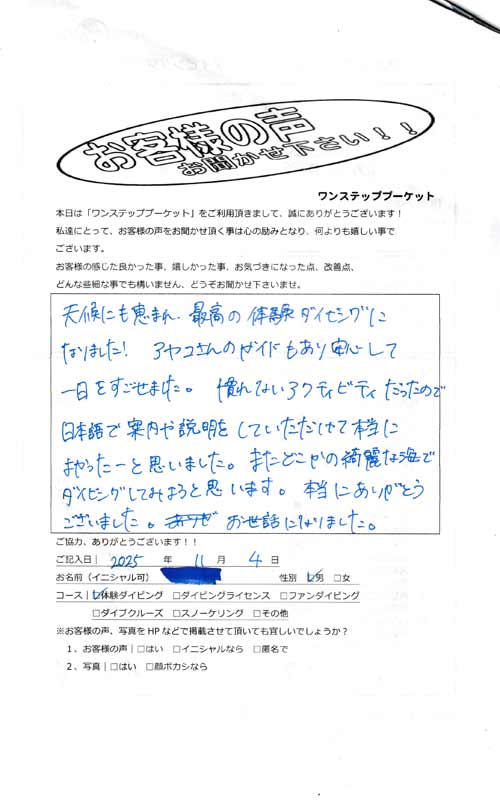 お客様の声
お聞かせ下さい！！
ワンステッププーケット
本日は「ワンステッププーケット」をご利用頂きまして、誠にありがとうございます！
私達にとって、お客様の声をお聞かせ頂く事は心の励みとなり、何よりも嬉しい事で
ございます。
お客様の感じた良かった事、嬉しかった事、お気づきになった点、改善点、
どんな些細な事でも構いません、どうぞお聞かせ下さいませ。
天候にも恵まれ、最高の体験ダイビングに
なりました！ アヤコさんのガイドもあり安心して
一日をすごせました。慣れないアクティビティだったので
日本語で案内や説明をしていただけて本当に
よかったーと思いました。またどこかの綺麗な海で
ダイビングしてみようと思います。本当にありがとう
ございました。お世話になりました。
ご協力、ありがとうございます！！
ご記入日｜ 2025 年 11 月 4 日
お名前（イニシャル可） 性別 ☑男 □女
コース｜☑体験ダイビング □ダイビングライセンス □ファンダイビング
□ダイブクルーズ □スノーケリング □その他
※お客様の声、写真をHPなどで掲載させて頂いても宜しいでしょうか？
1、お客様の声｜□はい □イニシャルなら □匿名で
2、写真｜□はい □顔ボカシなら